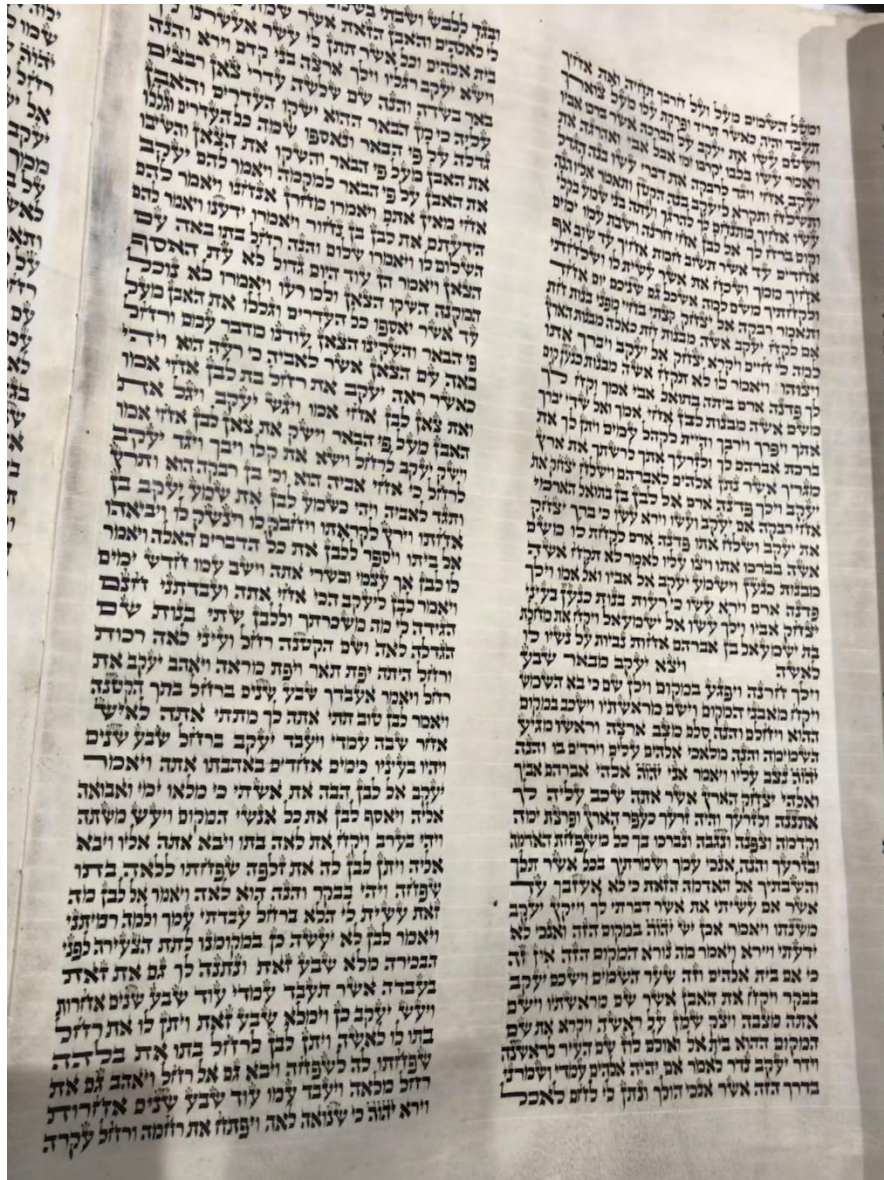 ומטל השמים מעל ועל חרבך תחיה ואת אחיך
תעבד והיה כאשר תריד ופרקת עלו מעל צוארך
וישטם עשו את יעקב על הברכה אשר ברכו אביו
ויאמר עשו בלבו יקרבו ימי אבל אבי ואהרגה את
יעקב אחי ויגד לרבקה את דברי עשו בנה הגדל
ותשלח ותקרא ליעקב בנה הקטן ותאמר אליו הנה
עשו אחיך מתנחם לך להרגך ועתה בני שמע בקלי
וקום ברח לך אל לבן אחי חרנה וישבת עמו ימים
אחדים עד אשר תשוב חמת אחיך עד שוב אף
אחיך ממך ושכח את אשר עשית לו ושלחתי
ולקחתיך משם למה אשכל גם שניכם יום אחד
ותאמר רבקה אל יצחק קצתי בחיי מפני בנות חת
אם לקח יעקב אשה מבנות חת כאלה מבנות הארץ
למה לי חיים ויקרא יצחק אל יעקב ויברך אתו
ויצוהו ויאמר לו לא תקח אשה מבנות כנען קום
לך פדנה ארם ביתה בתואל אבי אמך וקח לך
משם אשה מבנות לבן אחי אמך ואל שדי יברך
אתך ויפרך וירבך והיית לקהל עמים ויתן לך את
ברכת אברהם לך ולזרעך אתך לרשתך את ארץ
מגריך אשר נתן אלהים לאברהם וישלח יצחק את
יעקב וילך פדנה ארם אל לבן בן בתואל הארמי
אחי רבקה אם יעקב ועשו וירא עשו כי ברך יצחק
את יעקב ושלח אתו פדנה ארם לקחת לו משם
אשה בברכו אתו ויצו עליו לאמר לא תקח אשה
מבנות כנען וישמע יעקב אל אביו ואל אמו וילך
פדנה ארם וירא עשו כי רעות בנות כנען בעיני
יצחק אביו וילך עשו אל ישמעאל ויקח את מחלת
בת ישמעאל בן אברהם אחות נביות על נשיו לו
לאשה ויצא יעקב מבאר שבע
וילך חרנה ויפגע במקום וילן שם כי בא השמש
ויקח מאבני המקום וישם מראשתיו וישכב במקום
ההוא ויחלם והנה סלם מצב ארצה וראשו מגיע
השמימה והנה מלאכי אלהים עלים וירדים בו והנה
יהוה נצב עליו ויאמר אני יהוה אלהי אברהם אביך
ואלהי יצחק הארץ אשר אתה שכב עליה לך
אתננה ולזרעך והיה זרעך כעפר הארץ ופרצת ימה
וקדמה וצפנה ונגבה ונברכו בך כל משפחת האדמה
ובזרעך והנה אנכי עמך ושמרתיך בכל אשר תלך
והשבתיך אל האדמה הזאת כי לא אעזבך עד
אשר אם עשיתי את אשר דברתי לך וייקץ יעקב
משנתו ויאמר אכן יש יהוה במקום הזה ואנכי לא
ידעתי ויירא ויאמר מה נורא המקום הזה אין זה
כי אם בית אלהים וזה שער השמים וישכם יעקב
בבקר ויקח את האבן אשר שם מראשתיו וישם
אתה מצבה ויצק שמן על ראשה ויקרא את שם
המקום ההוא בית אל ואולם לוז שם העיר לראשנה
וידר יעקב נדר לאמר אם יהיה אלהים עמדי ושמרני
בדרך הזה אשר אנכי הולך ונתן לי לחם לאכל
ובגד ללבש ושבתי בשלום
לי לאלהים והאבן הזאת אשר שמתי
בית אלהים וכל אשר תתן לי עשר אעשרנו לך
וישא יעקב רגליו וילך ארצה בני קדם וירא והנה
באר בשדה והנה שם שלשה עדרי צאן רבצים
עליה כי מן הבאר ההוא ישקו העדרים והאבן
גדלה על פי הבאר ונאספו שמה כל העדרים וגללו
את האבן מעל פי הבאר והשקו את הצאן והשיבו
את האבן על פי הבאר למקמה ויאמר להם יעקב
אחי מאין אתם ויאמרו מחרן אנחנו ויאמר להם
הידעתם את לבן בן נחור ויאמרו ידענו ויאמר להם
השלום לו ויאמרו שלום והנה רחל בתו באה עם
הצאן ויאמר הן עוד היום גדול לא עת האסף
המקנה השקו הצאן ולכו רעו ויאמרו לא נוכל
עד אשר יאספו כל העדרים וגללו את האבן מעל
פי הבאר והשקינו הצאן עודנו מדבר עמם ורחל
באה עם הצאן אשר לאביה כי רעה הוא ויהי
כאשר ראה יעקב את רחל בת לבן אחי אמו
ואת צאן לבן אחי אמו ויגש יעקב ויגל את
האבן מעל פי הבאר וישק את צאן לבן אחי אמו
וישק יעקב לרחל וישא את קלו ויבך ויגד יעקב
לרחל כי אחי אביה הוא וכי בן רבקה הוא ותרץ
ותגד לאביה ויהי כשמע לבן את שמע יעקב בן
אחתו וירץ לקראתו ויחבק לו וינשק לו ויביאהו
אל ביתו ויספר ללבן את כל הדברים האלה ויאמר
לו לבן אך עצמי ובשרי אתה וישב עמו חדש ימים
ויאמר לבן ליעקב הכי אחי אתה ועבדתני חנם
הגידה לי מה משכרתך וללבן שתי בנות שם
הגדלה לאה ושם הקטנה רחל ועיני לאה רכות
ורחל היתה יפת תאר ויפת מראה ויאהב יעקב את
רחל ויאמר אעבדך שבע שנים ברחל בתך הקטנה
ויאמר לבן טוב תתי אתה לך מתתי אתה לאיש
אחר שבה עמדי ויעבד יעקב ברחל שבע שנים
ויהיו בעיניו כימים אחדים באהבתו אתה ויאמר
יעקב אל לבן הבה את אשתי כי מלאו ימי ואבואה
אליה ויאסף לבן את כל אנשי המקום ויעש משתה
ויהי בערב ויקח את לאה בתו ויבא אתה אליו ויבא
אליה ויתן לבן לה את זלפה שפחתו ללאה בתו
שפחה ויהי בבקר והנה הוא לאה ויאמר אל לבן מה
זאת עשית לי הלא ברחל עבדתי עמך ולמה רמיתני
ויאמר לבן לא יעשה כן במקומנו לתת הצעירה לפני
הבכירה מלא שבע זאת ונתנה לך גם את זאת
בעבדה אשר תעבד עמדי עוד שבע שנים אחרות
ויעש יעקב כן וימלא שבע זאת ויתן לו את רחל
בתו לו לאשה ויתן לבן לרחל בתו את בלהה
שפחתו לה לשפחה ויבא גם אל רחל ויאהב גם את
רחל מלאה ויעבד עמו עוד שבע שנים אחרות
וירא יהוה כי שנואה לאה ויפתח את רחמה ורחל עקרה